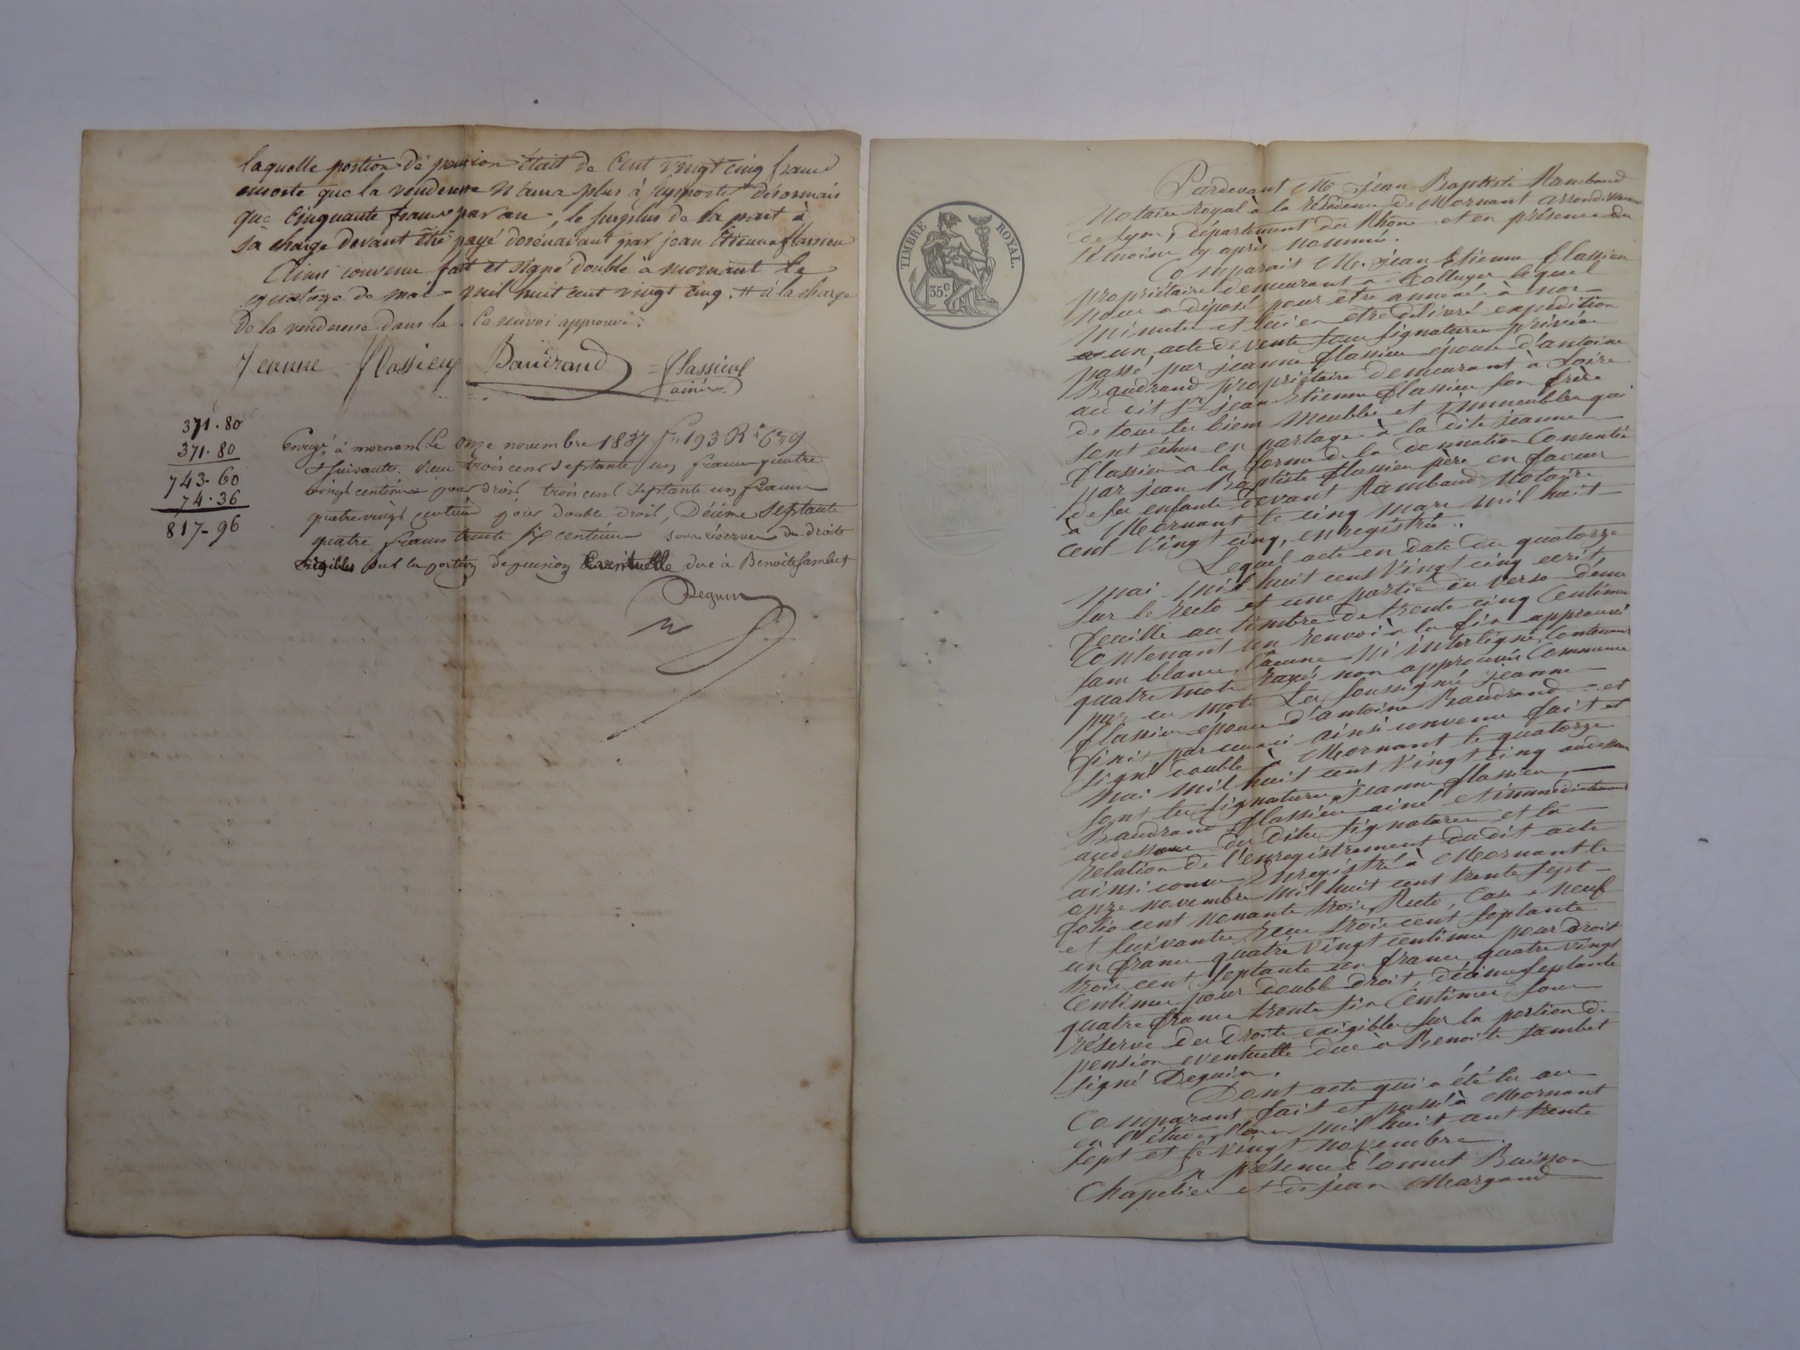 laquelle portion de pension était de Cent vingt cinq francs
ensorte que la venderesse n'aura plus à supporter désormais
que Cinquante francs par an, le surplus de la part à
sa charge devant être payé dorénavant par jean Etienne flassieu
Ainsi convenu fait et signé double à mornant le
quatorze de mai mil huit cent vingt cinq. # à la charge
De la venderesse dans la. Ce renvoi approuvé.
Jeanne flassieu Baudrand = flassieu
ainé
371.80
371.80
743.60
74.36
817.96
Enregé à mornant Le onze novembre 1837 fo 193 Ro Ce 9
& suivants. Reçu trois cent septante un francs quatre
vingt centimes pour droit trois cent septante un francs
quatre vingt centimes pour double droit, Décime septante
quatre francs trente six centimes sous réserve de droits
exigibles sur la portion de pension éventuelle due à Benoîte Jambet
Deguin
TIMBRE ROYAL.
35c.
Pardevant Me Jean Baptiste Rambaud
Notaire royal à la résidence de Mornant arrondissement
de Lyon, département du Rhône et en présence des
témoins cy après nommés.
Comparait M. Jean Etienne flassieu
propriétaire demeurant à lequel
nous a déposé pour être annexé à nos
minutes et lui en être délivré expédition
un acte de vente sous signatures privées
passé par jeanne flassieu épouse d'antoine
Baudrand propriétaire demeurant à
au dit sr jean Etienne flassieu son frère
de tous les biens meubles et immeubles qui
sont échus en partage à la dite jeanne
flassieu à la forme de la donation Consentie
par jean Baptiste flassieu père en faveur
de ses enfants devant Rambaud Notaire
à Mornant le cinq mars mil huit
cent vingt cinq, enregistrée.
Lequel acte en date du quatorze
mai mil huit cent vingt cinq écrit
sur le recto et une partie du verso d'une
feuille au timbre de trente cinq Centimes
Contenant un renvoi à la fin approuvé
sans blanc lacune ni interligne, Contenant
quatre mots rayés non approuvés Commence
par ces mots Les soussignés jeanne
flassieu épouse d'antoine Baudrand et
finit par ceux ci ainsi convenu fait et
signé double à Mornant le quatorze
mai mil huit cent vingt cinq au dessous
sont les signatures jeanne flassieu
Baudrand flassieu ainé et immédiatement
au dessous des dites signatures est la
relation de l'enregistrement du dit acte
ainsi conçue Enregistré à Mornant le
onze novembre mil huit cent trente sept
folio cent nonante trois, Recto, Case neuf
et suivantes, Reçu trois cent septante
un francs quatre vingt centimes pour droit
trois cent septante un francs quatre vingt
Centimes pour double droit, décime septante
quatre francs trente six Centimes sous
réserve des droits exigibles sur la portion de
pension éventuelle due à Benoîte Jambet
signé Deguin.
Dont acte qui a été lu au
Comparant fait et passé à Mornant
en l'étude l'an mil huit cent trente
sept et le vingt novembre
En présence d' Buisson
Chapelier et de jean Margand